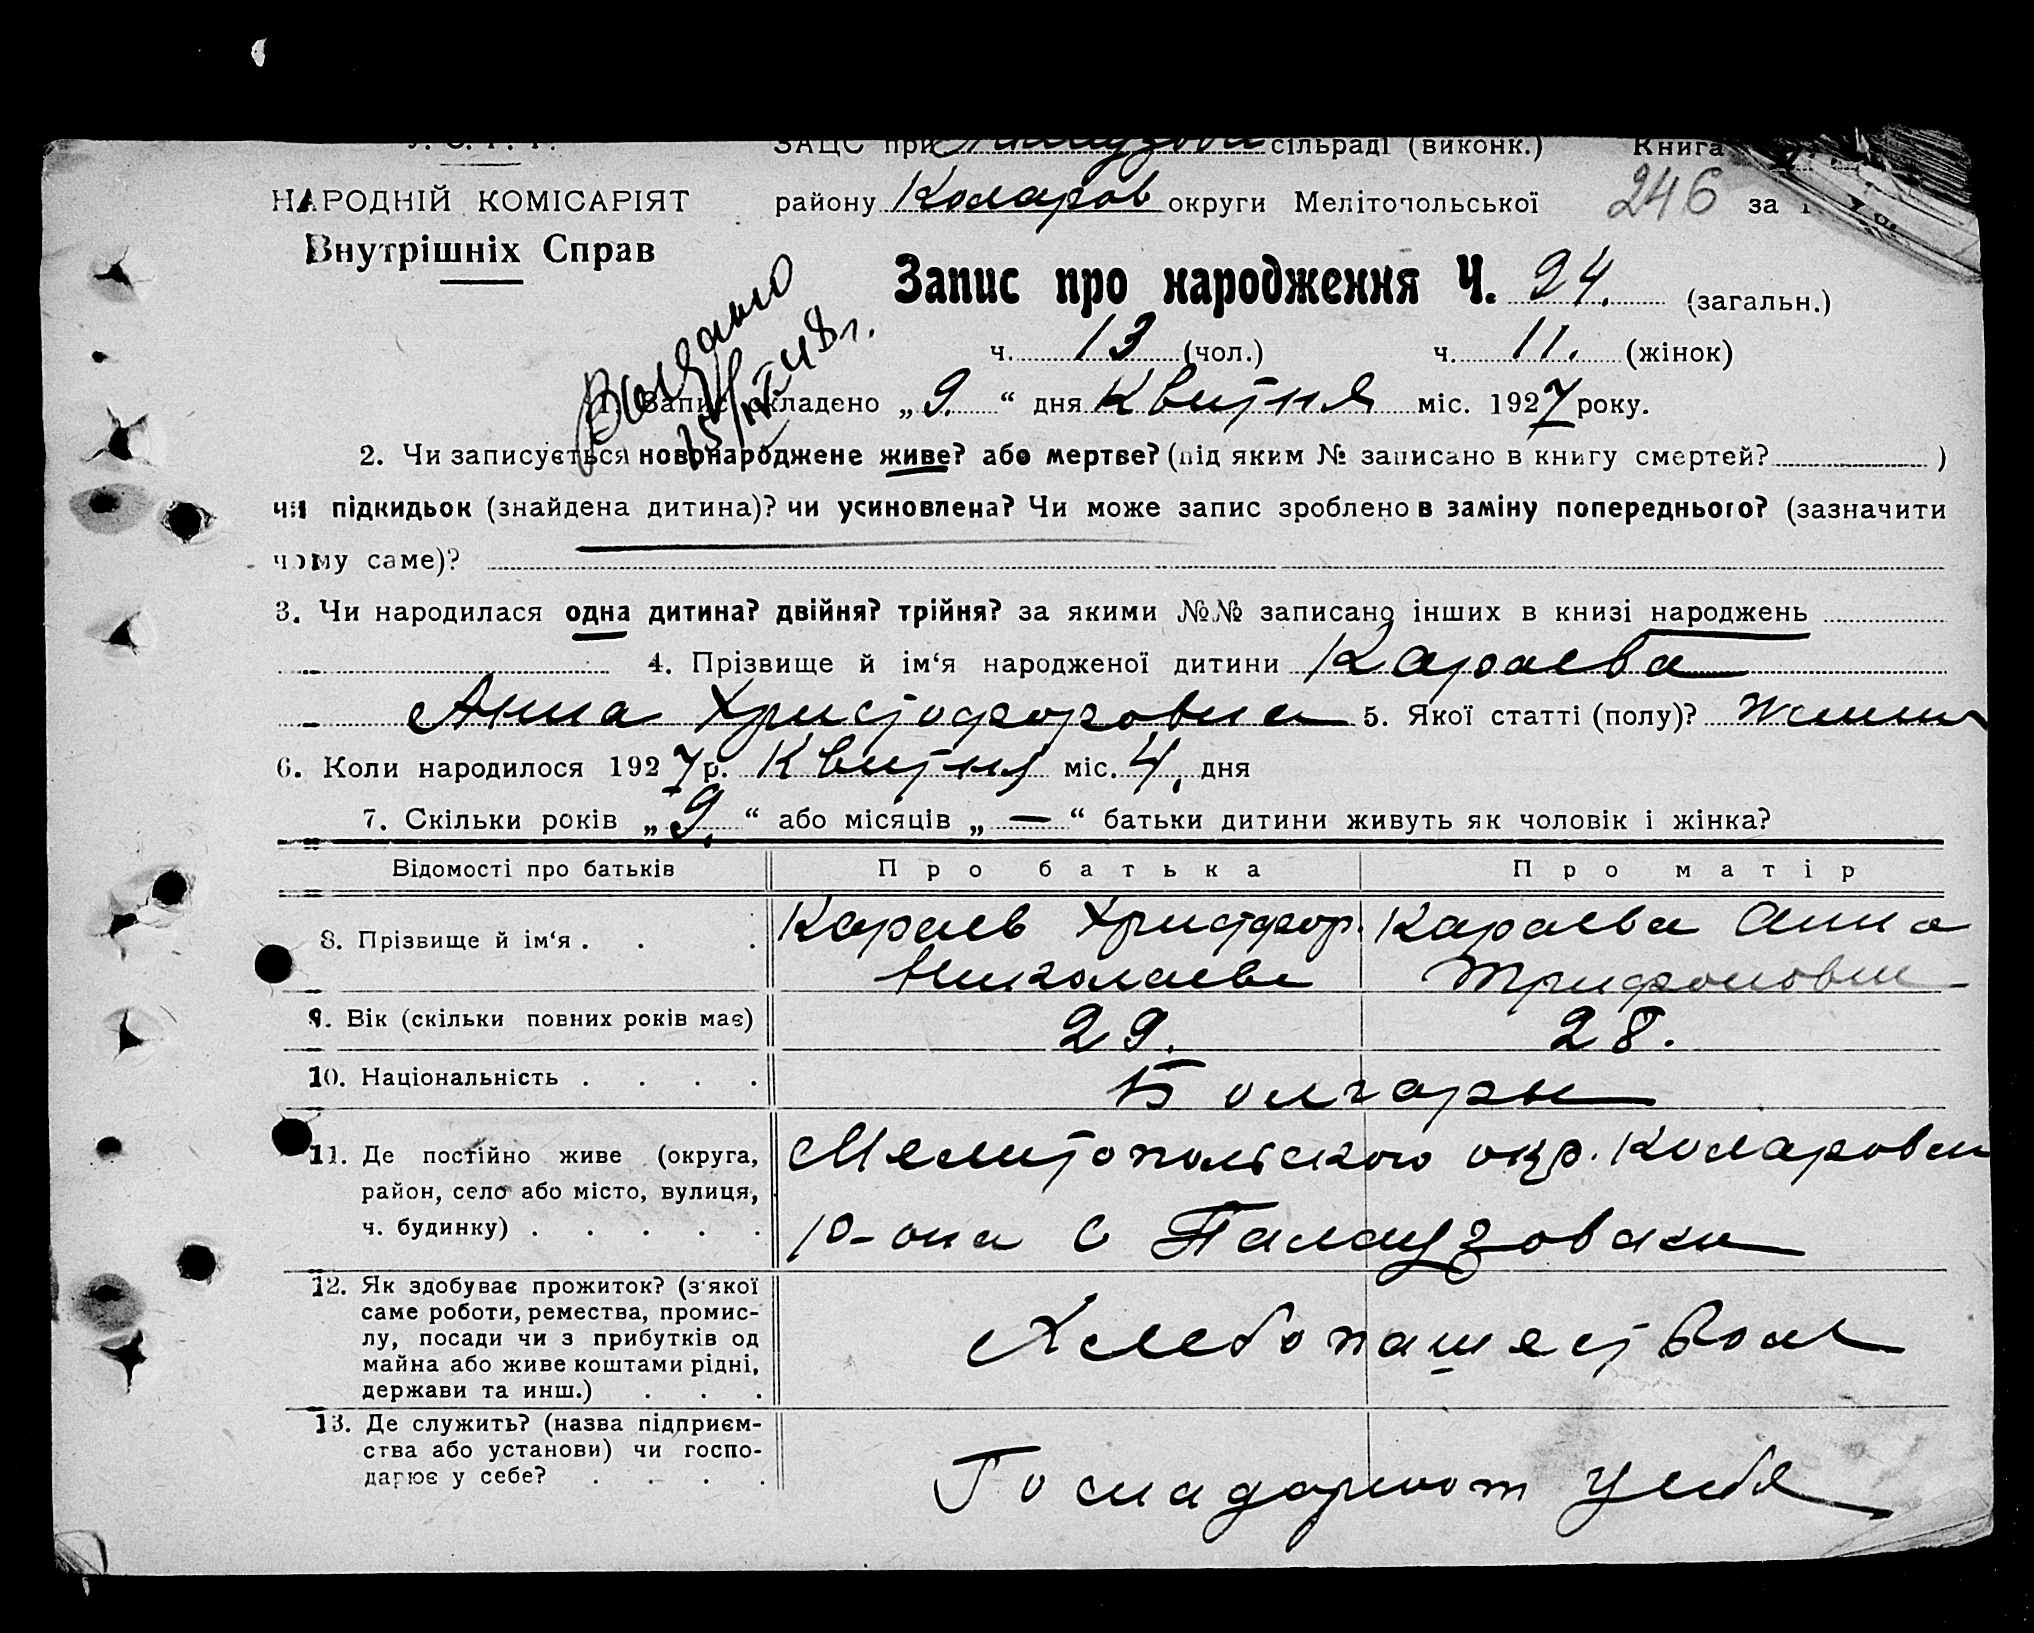 У. С. Р. Р. ЗАЦС при сільраді (виконк.) Книга
НАРОДНІЙ КОМІСАРІЯТ району Коларов округи Мелітопольської 246 за 1
Внутрішніх Справ
Запис про народження Ч. 24. (загальн.)
Выдано
15/IV 48 г.
ч. 13 (чол.) ч. 11. (жінок)
1. Запис складено „9.“ дня Квитня міс. 1927 року.
2. Чи записується новонароджене живе? або мертве? (під яким № записано в книгу смертей? )
чи підкидьок (знайдена дитина)? чи усиновлена? Чи може запис зроблено в заміну попереднього? (зазначити
чому саме)?
3. Чи народилася одна дитина? двійня? трійня? за якими №№ записано інших в книзі народжень
4. Прізвище й ім‘я народженої дитини Караева
Анна Христофоровна 5. Якої статті (полу)?
6. Коли народилося 1927 р. Квитня міс. 4. дня
7. Скільки років „9.“ або місяців „—“ батьки дитини живуть як чоловік і жінка?
Відомості про батьків Про батька Про матір
8. Прізвище й ім‘я . . . Караев Христофор. Караева Анна
Николаев Трифоновн
9. Вік (скільки повних років має) 29. 28.
10. Національність . . . . Болгары
11. Де постійно живе (округа, Мелитопольского окр. Коларовск
район, село або місто, вулиця,
ч. будинку) . . . . . р-она с Палаузовки
12. Як здобуває прожиток? (з'якої
саме роботи, ремества, промис-
лу, посади чи з прибутків од Хлебопашеством
майна або живе коштами рідні,
держави та инш.) . . .
13. Де служить? (назва підприєм-
ства або установи) чи госпо-
дарює у себе? . . . . Господарюют у себя